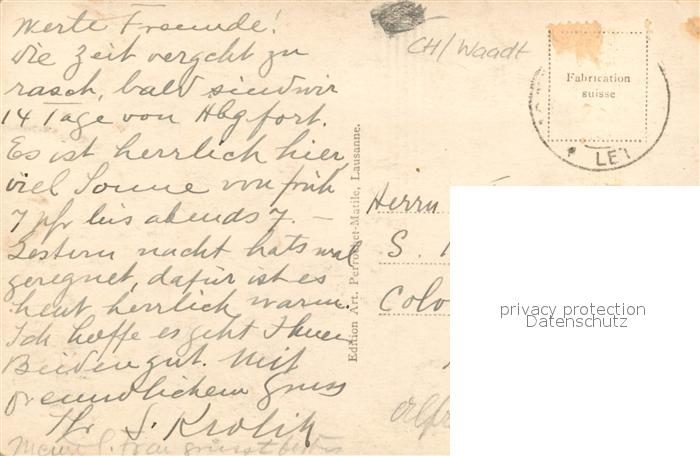 Werte Freunde!
Die Zeit vergeht zu
rasch, bald sind wir
14 Tage von Hbg fort.
Es ist herrlich hier,
viel Sonne von früh
7 Uhr bis abends 7. —
Gestern nacht hats mal
geregnet, dafür ist es
heut herrlich warm.
Ich hoffe es geht Ihnen
Beiden gut. Mit
freundlichem Gruss
Ihr S. Krolik
Meine l. Frau grüsst bestens
Edition Art. Perrochet-Matile, Lausanne.
CH/Waadt
Fabrication
suisse
LE
Herrn
S.
Colo
privacy protection
Datenschutz